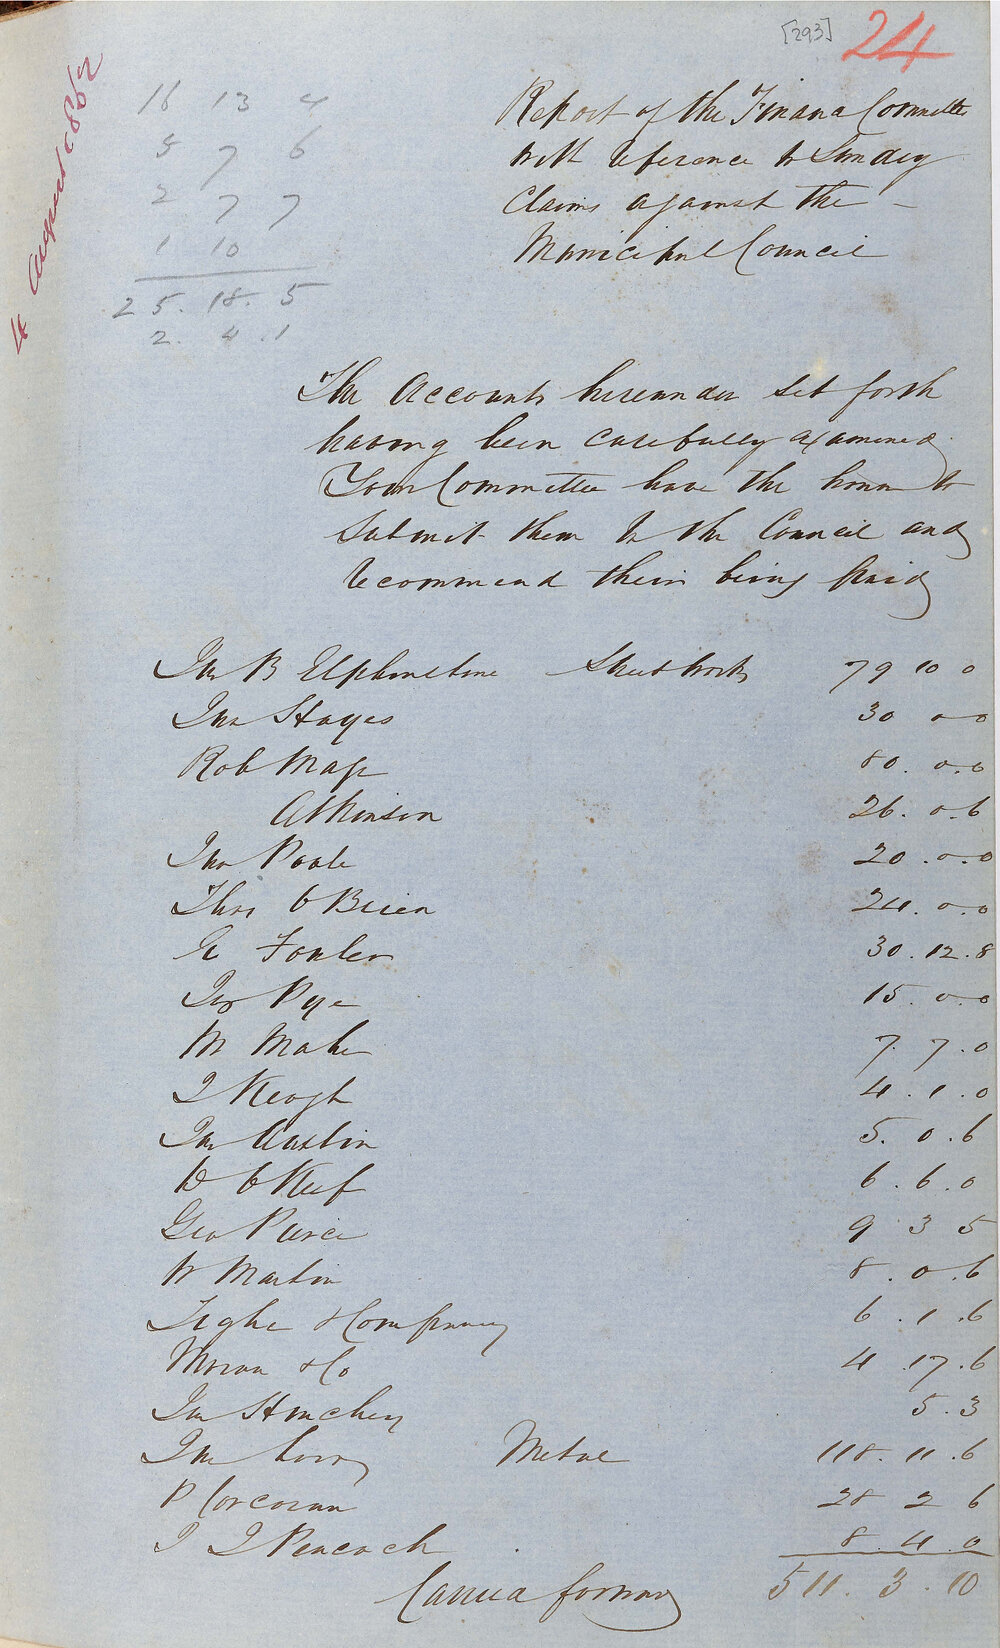 [293] 24
4 August 1862
16 13 4
5 7 6
2 7 7
1 10
25. 18. 5
2. 4. 1
Report of the Finance Committee
with reference to Sundry
Claims against the –
Municipal Council
The Accounts hereunder set forth
having been carefully examined.
Your Committee have the honor to
submit them to the Council and
recommend their being paid
Jno B Elphinstone Street Work 79 10 0
Jno Hayes 30 0 0
Rob Mase 80. 0. 0
Atkinson 26. 0. 6
Jno Poole 20. 0. 0
Thos O Brien 24. 0. 0
G Fowler 30. 12. 8
Jas Pye 15. 0. 0
M Maher 7. 7. 0
J Keogh 4. 1. 0
Jno Austin 5. 0. 6
D O Keef 6. 6. 0
Geo Pierce 9 3 5
W Martin 8. 0. 6
Tighe & Company 6. 1. 6
Moran & Co 4. 17. 6
Jno Hinchey 5. 3
Jno Metal 118. 11. 6
P Corcoran 28 2 6
J J Peacock 8. 4. 0
Carried forward 511. 3. 10